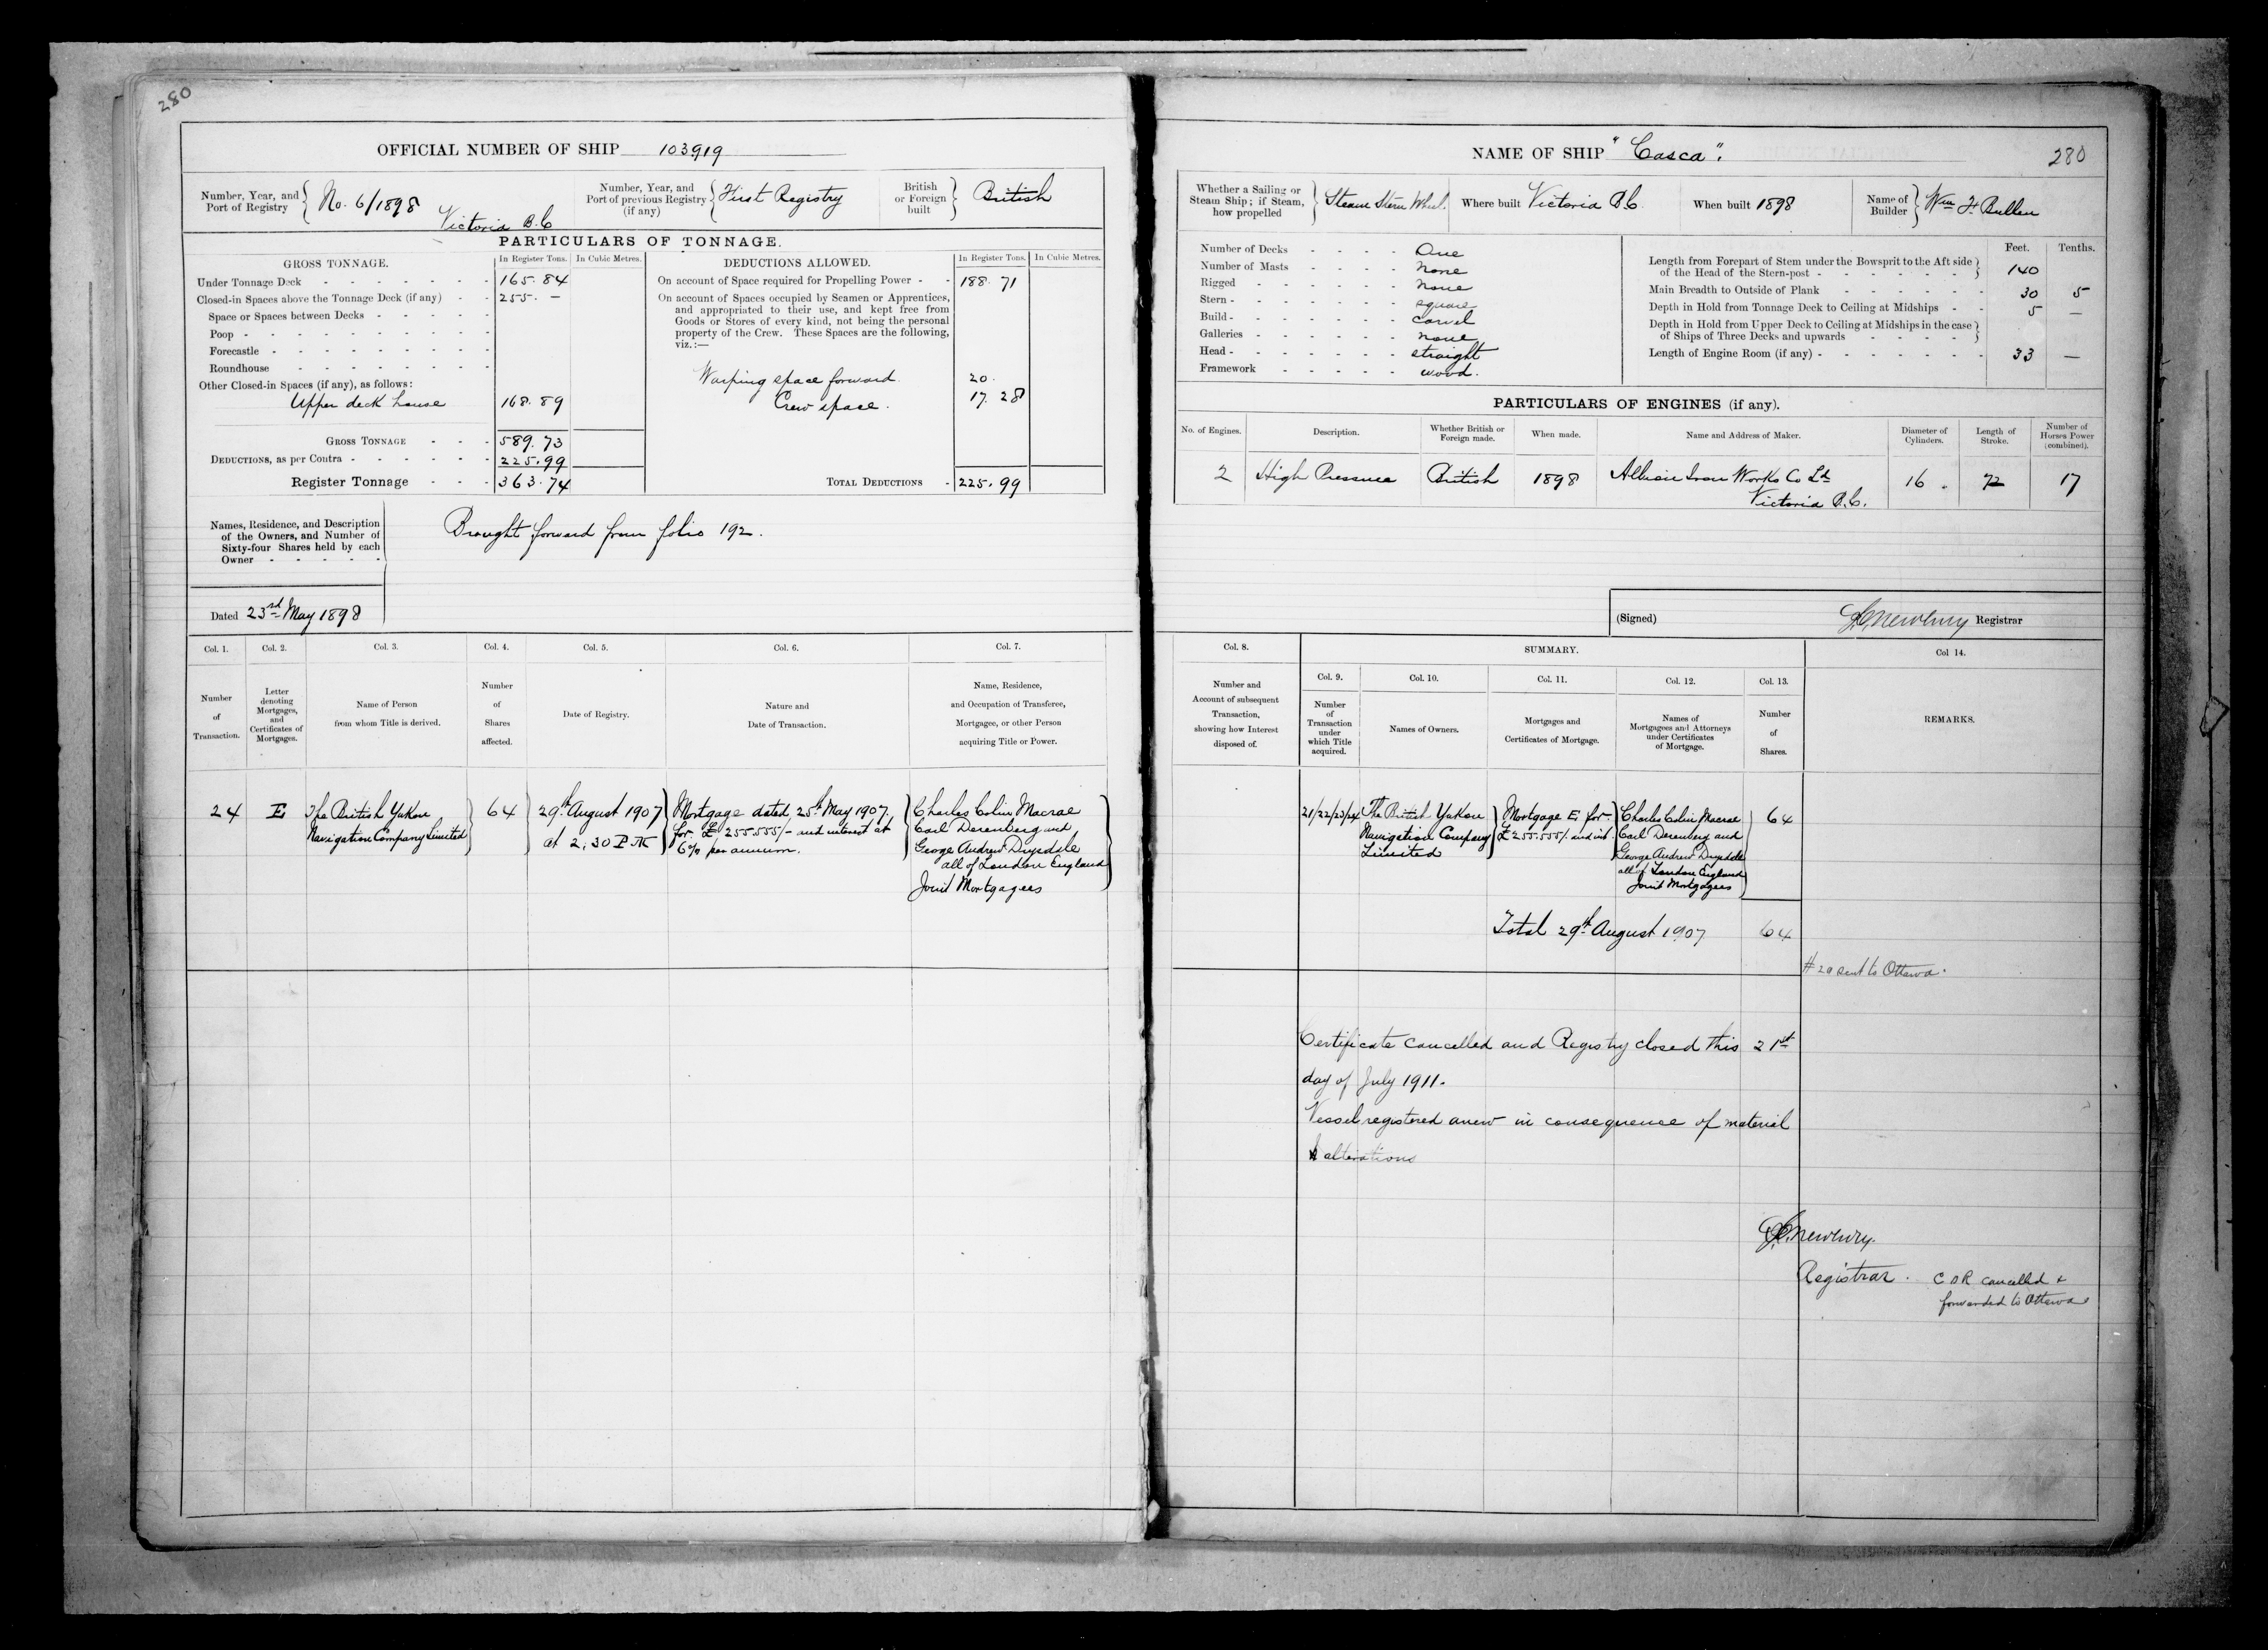 280
OFFICIAL NUMBER OF SHIP 103919
Number, Year, and Port of Registry
No. 6/1898
Victoria B.C
Number, Year, and Port of previous Registry (if any)
First Registry
British or Foreign built
British
PARTICULARS OF TONNAGE.
GROSS TONNAGE.
In Register Tons.
In Cubic Metres.
Under Tonnage Deck - - - - - 165.84
Closed-in Spaces above the Tonnage Deck (if any) - - 255. —
Space or Spaces between Decks - - - - -
Poop - - - - - - - - - -
Forecastle - - - - - - - - -
Roundhouse - - - - - - - -
Other Closed-in Spaces (if any), as follows:
Upper deck house 168.89
GROSS TONNAGE - - - 589.73
DEDUCTIONS, as per Contra - - - - - - 225.99
Register Tonnage - - - 363.74
DEDUCTIONS ALLOWED.
In Register Tons.
In Cubic Metres.
On account of Space required for Propelling Power - - 188.71
On account of Spaces occupied by Seamen or Apprentices,
and appropriated to their use, and kept free from
Goods or Stores of every kind, not being the personal
property of the Crew. These Spaces are the following,
viz.:—
Warping space forward. 20.
Crew space. 17.28
TOTAL DEDUCTIONS - 225.99
Names, Residence, and Description
of the Owners, and Number of
Sixty-four Shares held by each
Owner - - - - -
Brought forward from folio 192.
Dated 23rd May 1898
Col. 1.
Number
of
Transaction.
Col. 2.
Letter
denoting
Mortgages,
and
Certificates of
Mortgages.
Col. 3.
Name of Person
from whom Title is derived.
Col. 4.
Number
of
Shares
affected.
Col. 5.
Date of Registry.
Col. 6.
Nature and
Date of Transaction.
Col. 7.
Name, Residence,
and Occupation of Transferee,
Mortgagee, or other Person
acquiring Title or Power.
24
E
The British Yukon
Navigation Company Limited
64
29th August 1907
at 2.30 P.M
Mortgage dated 25th May 1907.
for £255.555/- and interest at
6% per annum.
Charles Colin Macrae
Carl Derenberg and
George Andrew Drysdale
all of London England
Joint Mortgagees
NAME OF SHIP "Casca".
280
Whether a Sailing or
Steam Ship; if Steam,
how propelled
Steam Stern Wheel.
Where built Victoria B.C.
When built 1898
Name of Builder
Wm F Bullen
Number of Decks - - - - One
Number of Masts - - - - none
Rigged - - - - - none
Stern - - - - - - square
Build - - - - - - carvel
Galleries - - - - - none
Head - - - - - - straight
Framework - - - - - wood.
Feet.
Tenths.
Length from Forepart of Stem under the Bowsprit to the Aft side
of the Head of the Stern-post - - - - - - 140
Main Breadth to Outside of Plank - - - - - - 30 5
Depth in Hold from Tonnage Deck to Ceiling at Midships - - 5 —
Depth in Hold from Upper Deck to Ceiling at Midships in the case
of Ships of Three Decks and upwards - - - - -
Length of Engine Room (if any) - - - - - - - 33 —
PARTICULARS OF ENGINES (if any).
No. of Engines.
Description.
Whether British or
Foreign made.
When made.
Name and Address of Maker.
Diameter of
Cylinders.
Length of
Stroke.
Number of
Horses Power
(combined).
2
High Pressure
British
1898
Albion Iron Works Co Ld
Victoria B.C.
16
72
17
(Signed)
Newbury Registrar
Col. 8.
Number and
Account of subsequent
Transaction,
showing how Interest
disposed of.
SUMMARY.
Col. 9.
Number
of
Transaction
under
which Title
acquired.
Col. 10.
Names of Owners.
Col. 11.
Mortgages and
Certificates of Mortgage.
Col. 12.
Names of
Mortgagees and Attorneys
under Certificates
of Mortgage.
Col. 13.
Number
of
Shares.
Col 14.
REMARKS.
21/22/23/24
The British Yukon
Navigation Company
Limited
Mortgage E for
£255.555/- and int.
Charles Colin Macrae
Carl Derenberg and
George Andrew Drysdale
all of London England
Joint Mortgagees
64
Total 29th August 1907 64
# 20 sent to Ottawa.
Certificate cancelled and Registry closed this 21st
day of July 1911.
Vessel registered anew in consequence of material
alterations
Newbury.
Registrar.
C O R cancelled +
forwarded to Ottawa